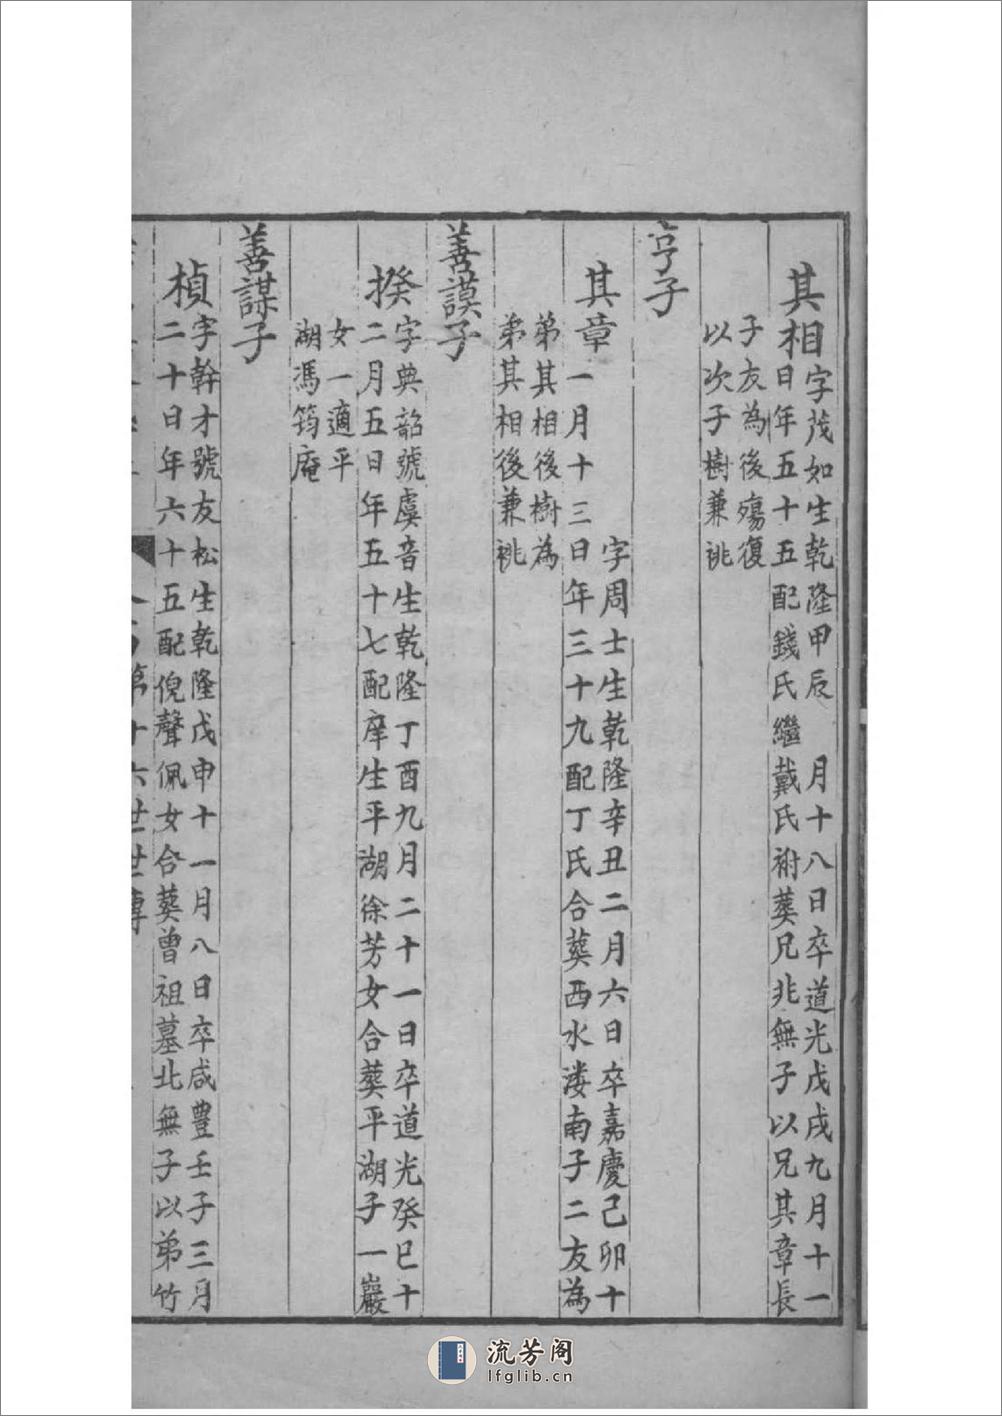 其相
字茂如生乾隆甲辰　月十八日卒道光戊戌九月十一
日年五十五配錢氏繼戴氏祔葬兄兆無子以兄其章長
子友為後殤復
以次子樹兼祧
亨子
其章
字周士生乾隆辛丑二月六日卒嘉慶己卯十
一月十三日年三十九配丁氏合葬西水淒南子二友為
弟其相後樹為
弟其相後兼祧
善謨子
揆
字典韶號虞音生乾隆丁酉九月二十一日卒道光癸巳十
二月五日年五十七配庠生平湖徐芳女合葬平湖子一巖
女一適平
湖馮筠庵
善謀子
楨
字幹才號友松生乾隆戊申十一月八日卒咸豐壬子三月
二十日年六十五配倪聲佩女合葬曾祖墓北無子以弟竹
第十六世世傳
流芳阁
lfglib.cn